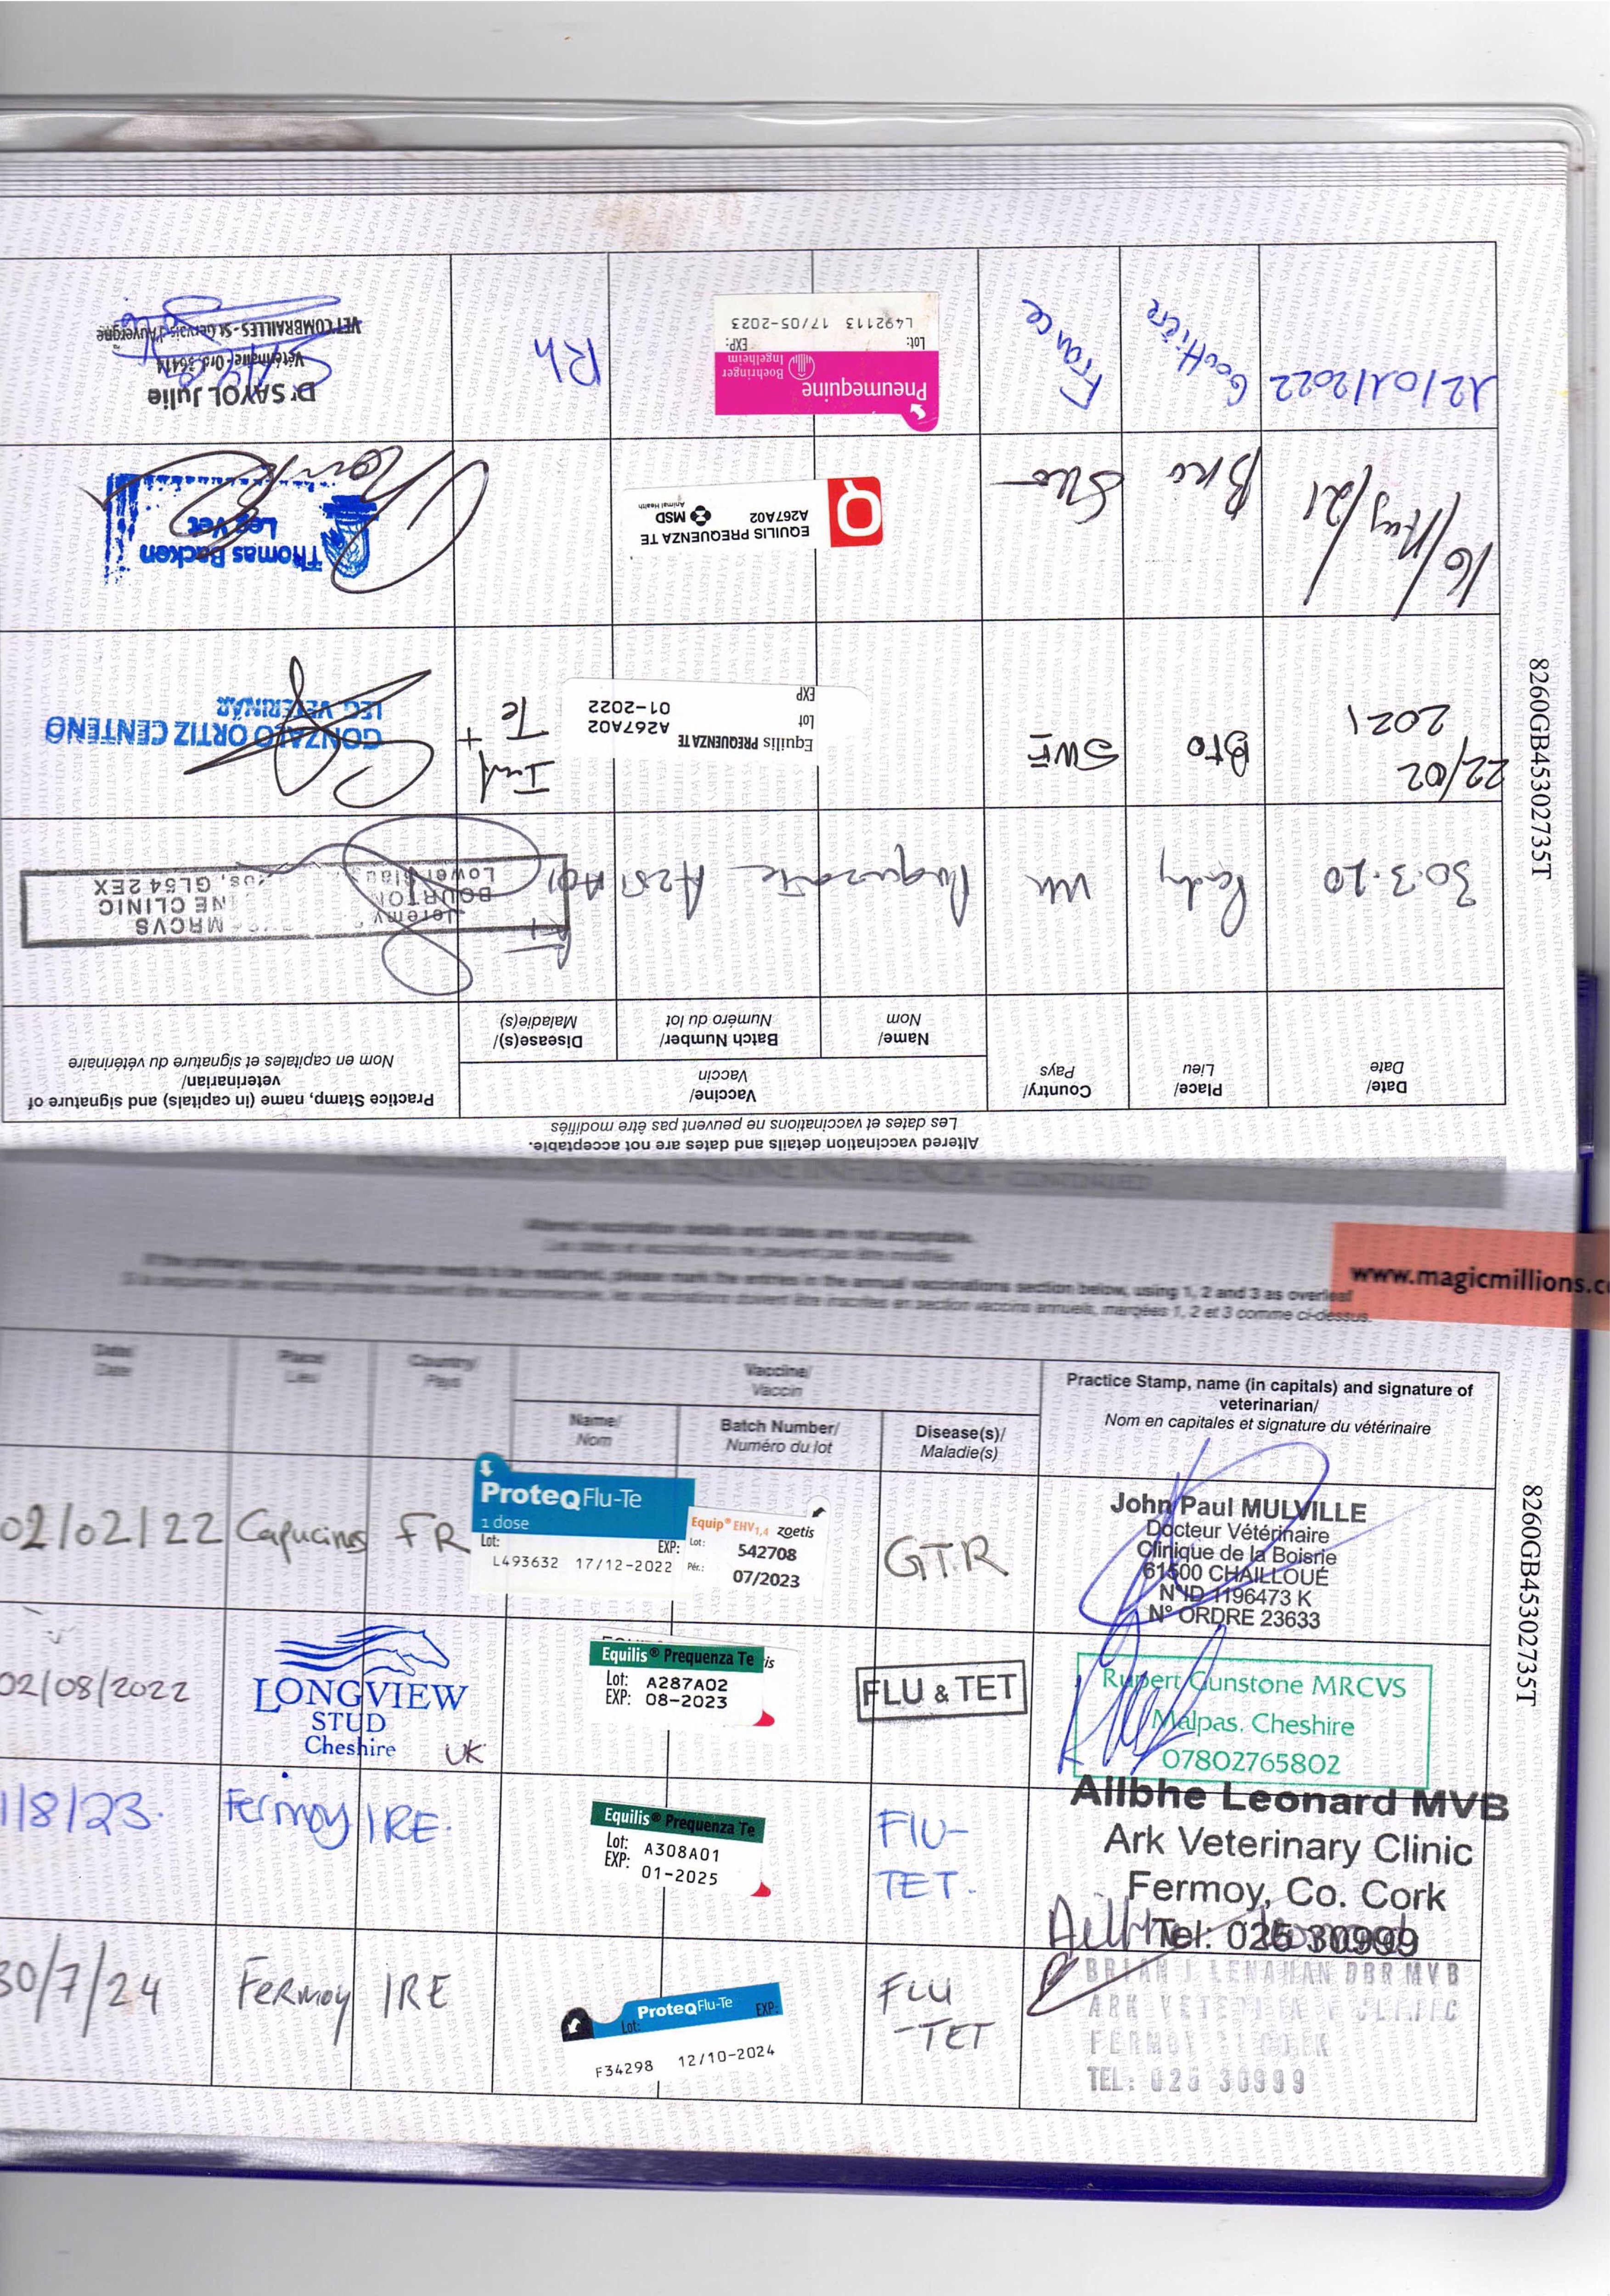 Altered vaccination details and dates are not acceptable.
Les dates et vaccinations ne peuvent pas être modifiés
Date/
Date
Place/
Lieu
Country/
Pays
Vaccine/
Vaccin
Name/
Nom
Batch Number/
Numéro du lot
Disease(s)/
Maladie(s)
Practice Stamp, name (in capitals) and signature of
veterinarian/
Nom en capitales et signature du vétérinaire
30.3.20
UK
Jeremy
MRCVS
BOURTON
NE CLINIC
Lower Slau
GL54 2EX
22/02
2021
Bro
SWE
Equilis PREQUENZA TE
Lot
A267A02
EXP
01-2022
Inf
+
Te
GONZALO ORTIZ CENTENO
LEG VETERINÄR
16/Aug/21
Bro
EQUILIS PREQUENZA TE
A267A02
MSD
Animal Health
Q
Thomas Backen
Leg Vet
12/01/2022
Gouttière
France
Pneumequine
Boehringer
Ingelheim
Lot:
EXP:
L492113 17/05-2023
Rh
Dr SAYOL Julie
Vétérinaire - Ord 36414
VET COMBRAILLES - St Gervais d'Auvergne
8260GB45302735T
www.magicmillions.c
Altered vaccination details and dates are not acceptable.
Les dates et vaccinations ne peuvent pas être modifiés
If the primary vaccination sequence needs to be restarted, please mark the entries in the annual vaccinations section below, using 1, 2 and 3 as overleaf
marquées 1, 2 et 3 comme ci-dessus.
Date/
Date
Place/
Lieu
Country/
Pays
Vaccine/
Vaccin
Name/
Nom
Batch Number/
Numéro du lot
Disease(s)/
Maladie(s)
Practice Stamp, name (in capitals) and signature of
veterinarian/
Nom en capitales et signature du vétérinaire
02/02/22
Capucines
FR
ProteqFlu-Te
1 dose
Lot:
EXP:
L493632 17/12-2022
Equip® EHV1,4 zoetis
Lot:
542708
Pér.:
07/2023
G.T.R
John Paul MULVILLE
Docteur Vétérinaire
Clinique de la Boisrie
61500 CHAILLOUÉ
N°ID 1196473 K
N° ORDRE 23633
02/08/2022
LONGVIEW
STUD
Cheshire
UK
Equilis® Prequenza Te
Lot: A287A02
EXP: 08-2023
FLU & TET
Rupert Gunstone MRCVS
Malpas, Cheshire
07802765802
1/8/23.
Fermoy
IRE.
Equilis® Prequenza Te
Lot: A308A01
EXP: 01-2025
FLU-
TET.
Ailbhe Leonard MVB
Ark Veterinary Clinic
Fermoy, Co. Cork
Tel: 025 30999
30/7/24
Fermoy
IRE
ProteqFlu-Te
Lot:
EXP:
F34298 12/10-2024
FLU
-TET
BRIAN J LENAHAN DBR MVB
ARK VETERINARY CLINIC
FERMOY CO CORK
TEL: 025 30999
8260GB45302735T